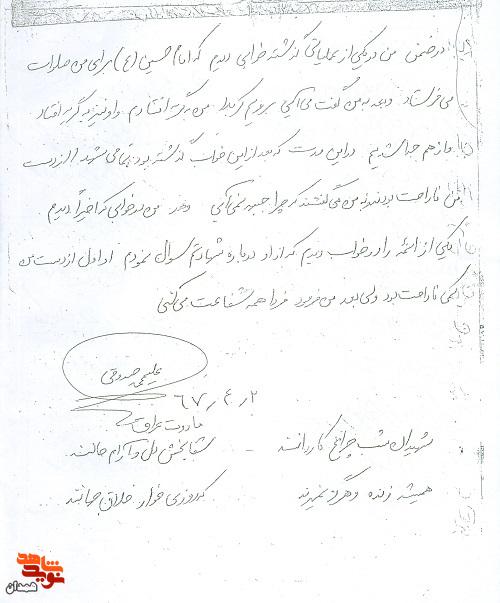 در ضمن من در یکی از عملیاتی گذشته خوابی دیدم که امام حسین (ع) برای من صلوات
می فرستاد و بعد به من گفت می آیی برویم کربلا من به گریه افتادم و او نیز به گریه افتاد
و از هم جدا شدیم در این مدت که بعد از این خواب گذشته بود می شود از دست
من ناراحت بودند و به من می گفتند که چرا جبهه نمی آیی و من در خوابی که اخیراً دیدم
یکی از ائمه را در خواب دیدم که از او درباره شهادتم سوال نمودم او اول از دست من
کمی ناراحت بود ولی بعد من فرمود فردا همه شفاعت می کنی
علیمحمد صدوقی
۶۷/۴/۲
ماروت عراق
شهیدان شب چراغ کاروانند - شفابخش دل و آرام جانند
همیشه زنده و هرگز نمیرند که روزی خوار خلاق جهانند
نوید شاهد
همدان